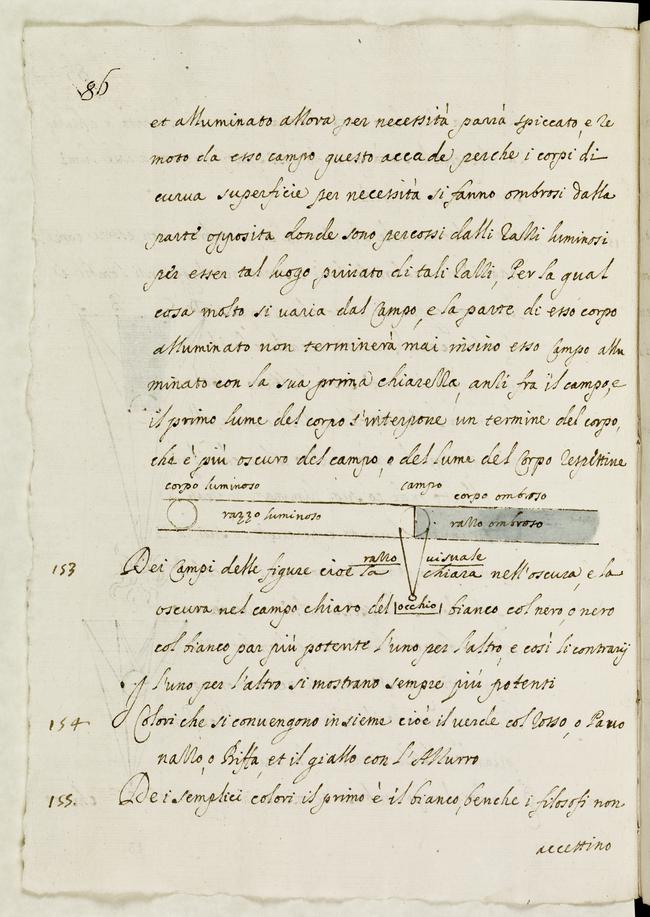 86
et alluminato allora per necessità parrà spiccato, e re
moto da esso campo questo accade perche i corpi di
curua superficie per necessità si fanno ombrosi dalla
parte opposita donde sono percossi dalli razzi luminosi
per esser tal luogo priuato di tali razzi, Per la qual
cosa molto si uaria dal campo, e la parte di esso corpo
alluminato non terminerà mai insino esso campo allu
minato con la sua prima chiarezza, anzi fra il campo, e
il primo lume del corpo s'interpone un termine del corpo,
che è più oscuro del campo, o del lume del corpo respettiue
corpo luminoso campo corpo ombroso
razzo luminoso razzo ombroso
razzo uisuale
153 Dei campi delle figure cioè la chiara nell'oscura, e la
oscura nel campo chiaro del bianco col nero, o nero
occhio
col bianco par più potente l'uno per l'altro, e così li contrarij
l'uno per l'altro si mostrano sempre più potenti
154 Colori che si conuengono insieme cioè il uerde col rosso, o Pauo
nazzo, o Biffa, et il giallo con l'Azzurro
155. De i semplici colori il primo è il bianco, benche i filosofi non
accettino